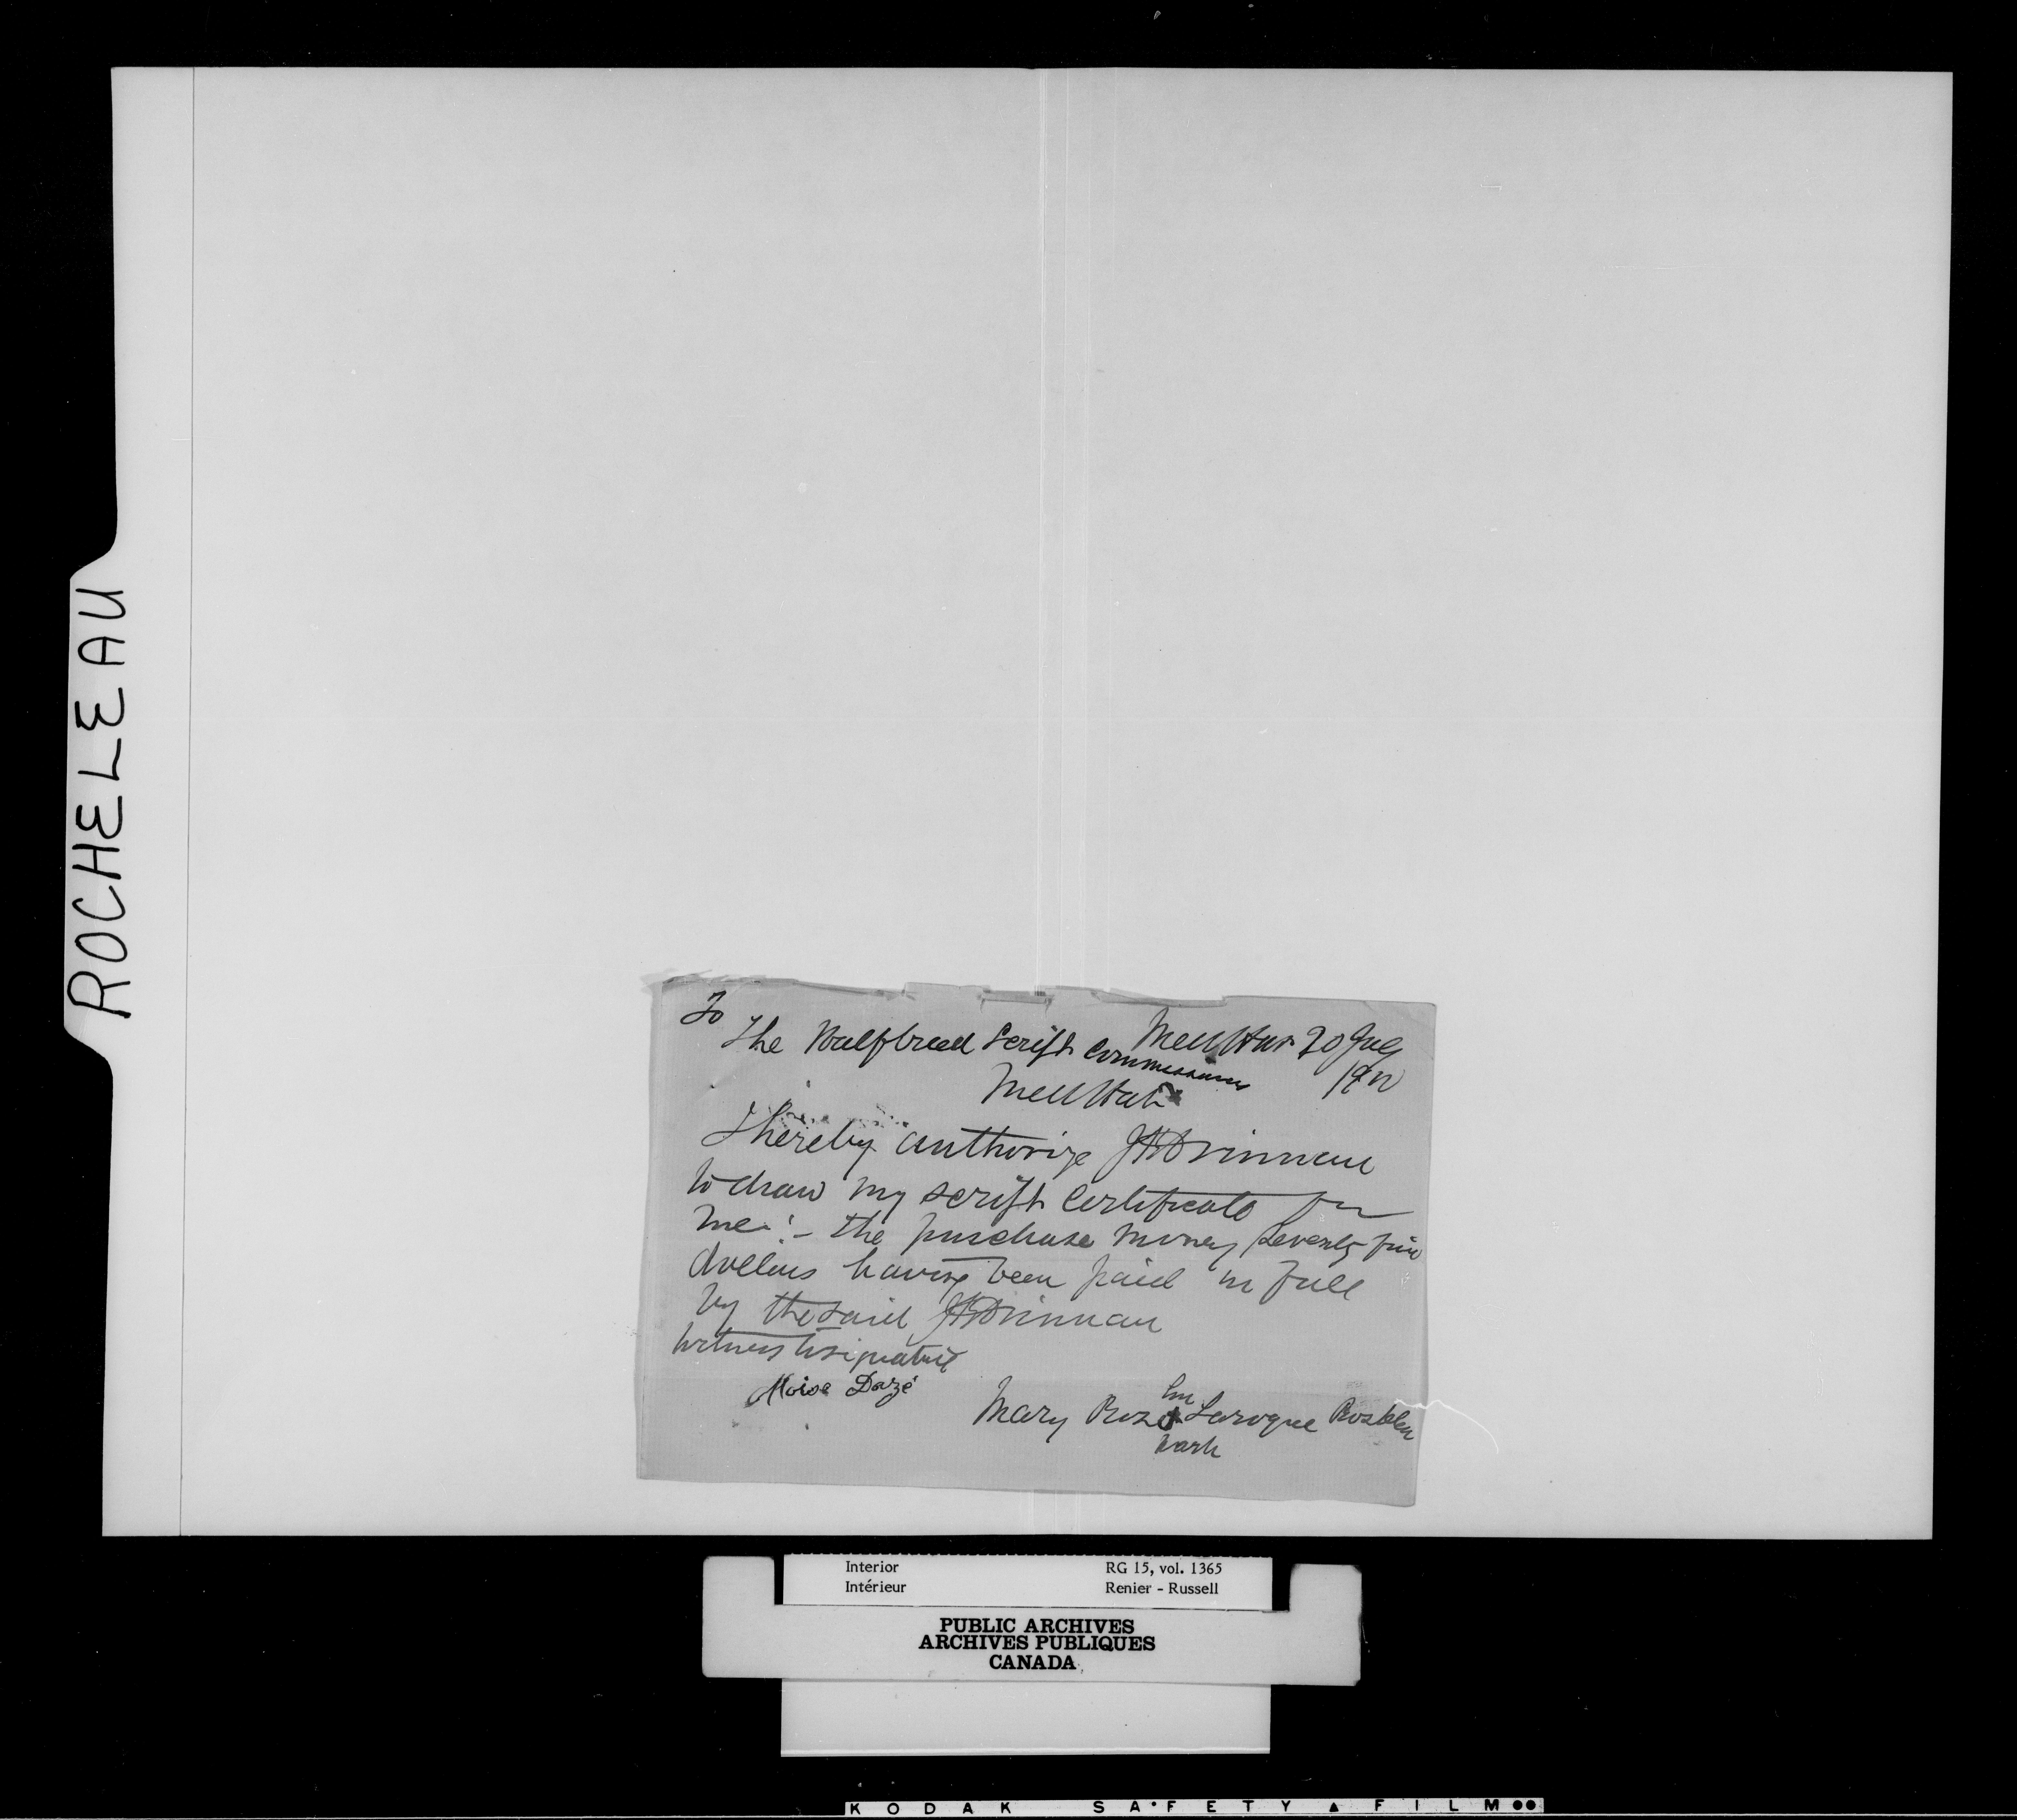 ROCHELEAU
To
Med Hat 20 July
1900
The Halfbreed Script Commissioners
Med Hat
I hereby authorize J H Drinnan
to draw my script certificate for
me :- the purchase money Seventy five
dollars having been paid in full
by the said J H Drinnan
Witness to signature
Moise Dazé
Mary Roz + Laroque
mark
Interior RG 15, vol. 1365
Intérieur Renier - Russell
PUBLIC ARCHIVES
ARCHIVES PUBLIQUES
CANADA
KODAK SAFETY FILM